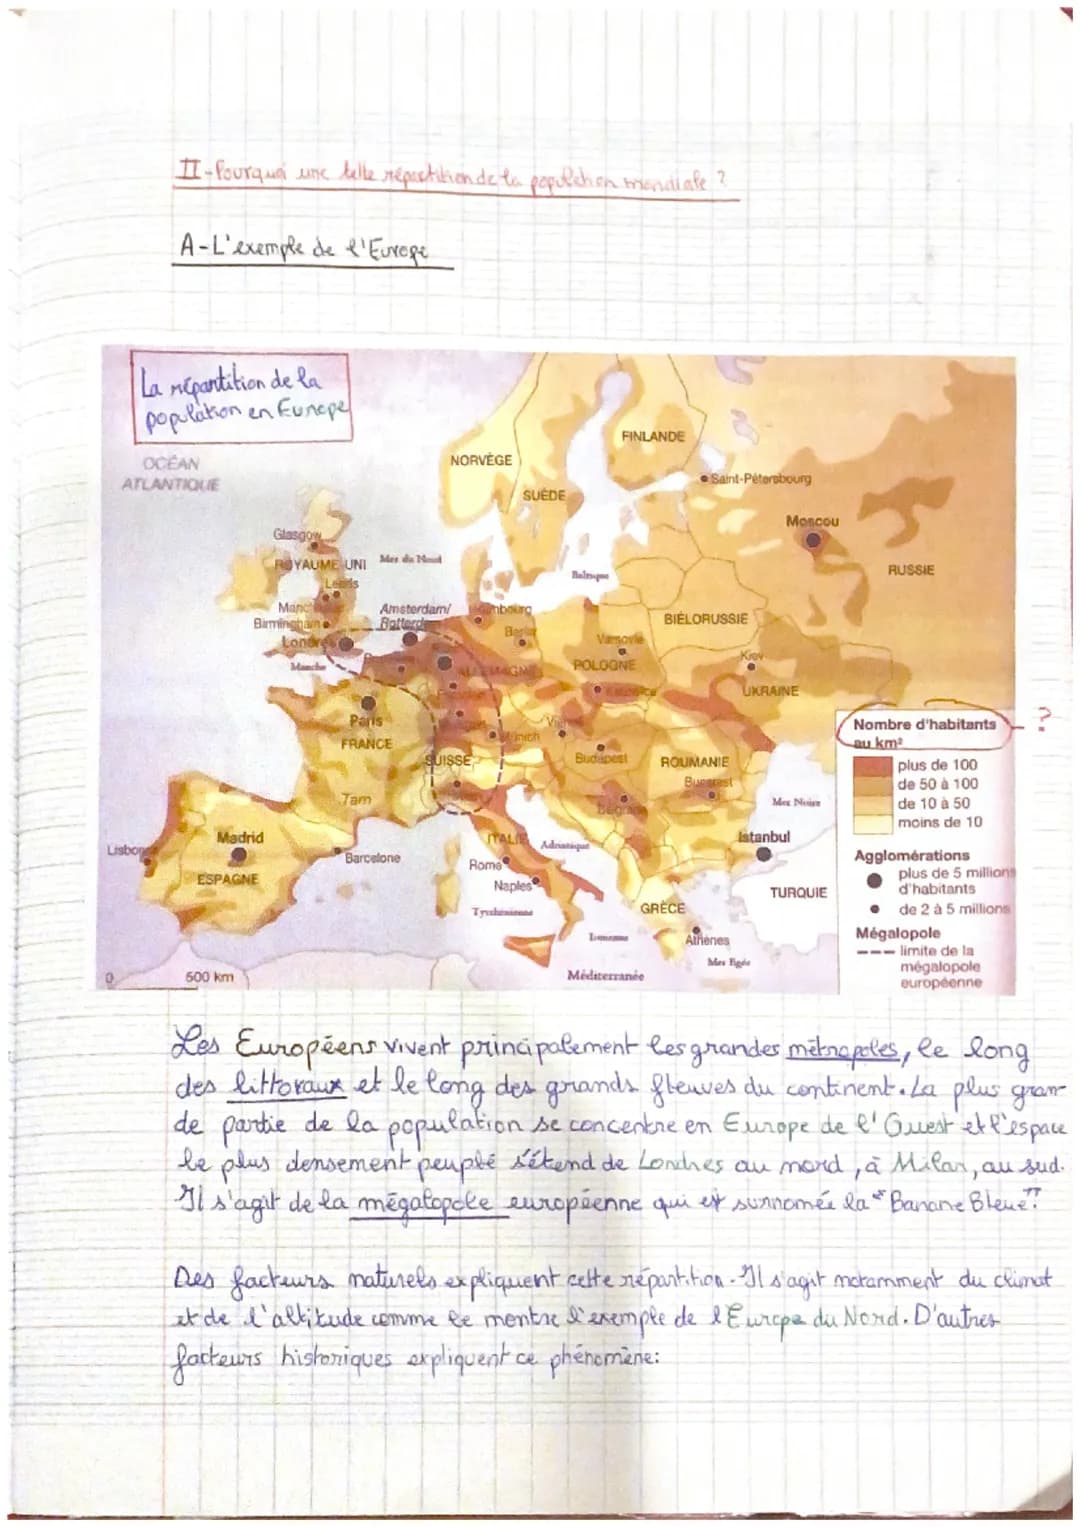 II-Pourquoi une telle répartition de la population mondiale ?
A-L'exemple de l'Europe
La répartition de la
population en Europe
OCÉAN
ATLANTIQUE
NORVÈGE
FINLANDE
SUÈDE
Saint-Pétersbourg
Moscou
RUSSIE
Glasgow
ROYAUME-UNI
Mer du Nord
Leeds
Baltique
Birmingham
Amsterdam/
Londres
Manche
Berlin
BIÉLORUSSIE
Varsovie
POLOGNE
Kiev
UKRAINE
Paris
FRANCE
SUISSE
Munich
Budapest
ROUMANIE
Bucarest
Mer Noire
Tarn
Belgrade
Madrid
Lisbonne
ESPAGNE
Barcelone
ITALIE
Adriatique
Rome
Naples
Tyrrhénienne
Istanbul
TURQUIE
GRÈCE
Athènes
Ionienne
Mer Egée
Méditerranée
0
500 km
Nombre d'habitants
au km²
?
plus de 100
de 50 à 100
de 10 à 50
moins de 10
Agglomérations
plus de 5 millions
d'habitants
de 2 à 5 millions
Mégalopole
limite de la
mégalopole
européenne
Les Européens vivent principalement les grandes métropoles, le long
des littoraux et le long des grands fleuves du continent. La plus gran-
de partie de la population se concentre en Europe de l'Ouest et l'espace
le plus densement peuplé s'étend de Londres au nord, à Milan, au sud.
Il s'agit de la mégalopole européenne qui est surnomée la "Banane Bleue".
Des facteurs naturels expliquent cette répartition. Il s'agit notamment du climat
et de l'altitude comme le montre l'exemple de l'Europe du Nord. D'autres
facteurs historiques expliquent ce phénomène: